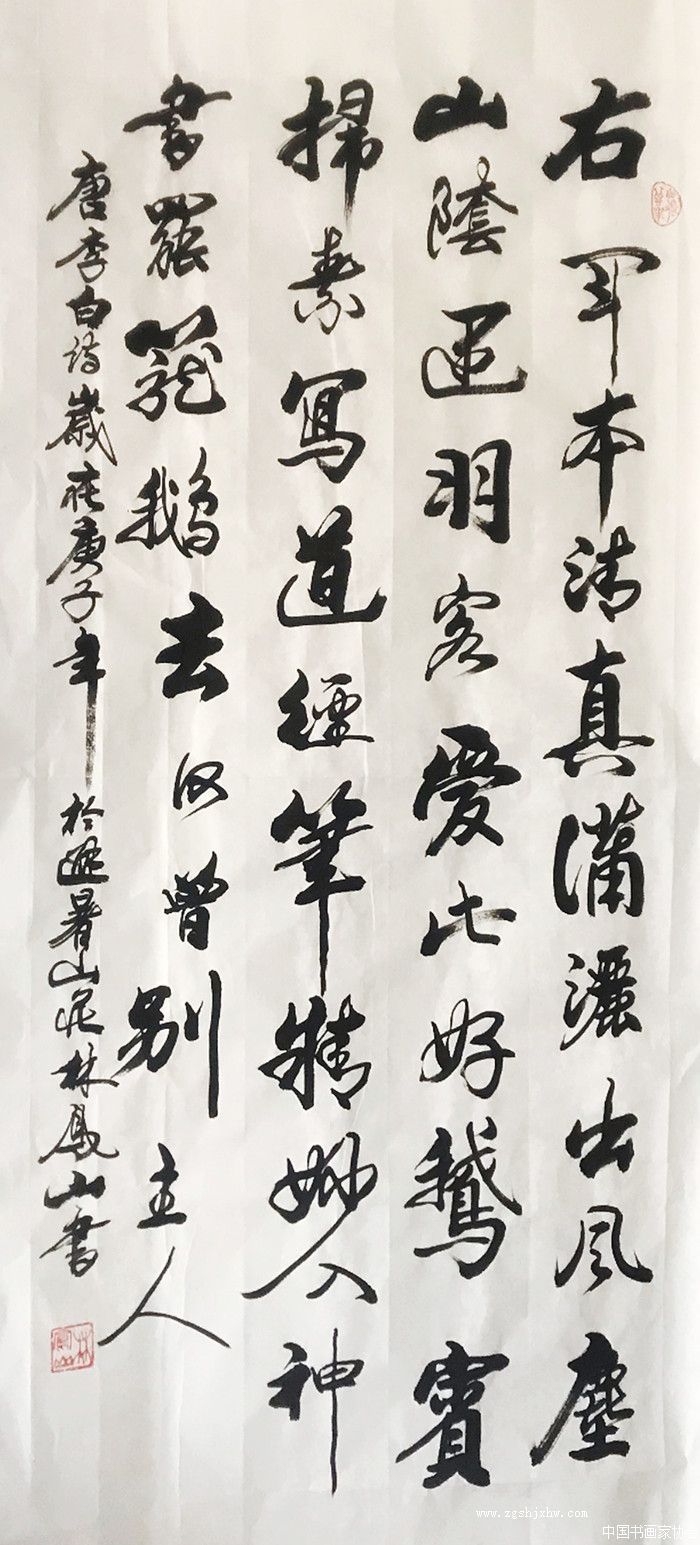 右軍本清真瀟灑出風塵
山陰遇羽客愛此好鵝賓
掃素寫道經筆精妙入神
書罷籠鵝去何曾別主人
唐李白詩歲在庚子年於避暑山莊林鳳山書
www.zgshjxhw.com
中国书画家协